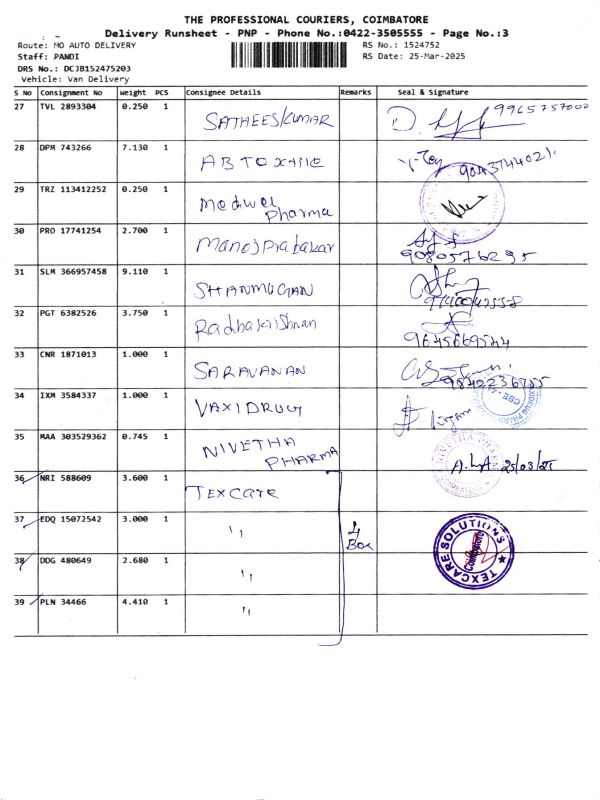 THE PROFESSIONAL COURIERS, COIMBATORE
Delivery Runsheet - PNP - Phone No.:0422-3505555 - Page No.:3
Route: MO AUTO DELIVERY
RS No.: 1524752
Staff: PANDI
RS Date: 25-Mar-2025
DRS No.: DCJB152475203
Vehicle: Van Delivery
S No Consignment No Weight PCS Consignee Details Remarks Seal & Signature
27 TVL 2893304 0.250 1 SATHEESKUMAR 9965757000
28 DPM 743266 7.130 1 ABTOXtile
29 TRZ 113412252 0.250 1 Medwel
Pharma
30 PRO 17741254 2.700 1 ManojPrabakar
9080576295
31 SLM 366957458 9.110 1 SHANMUGAN
32 PGT 6382526 3.750 1 Radhakrishnan
33 CNR 1871013 1.000 1 SARAVANAN
34 IXM 3584337 1.000 1 VAXIDRUG
35 MAA 303529362 0.745 1 NIVETHA
PHARMA
25/03/25
36 NRI 588609 3.600 1 TEXCare
37 EDQ 15072542 3.000 1 "
4
Box
TEXCARE SOLUTIONS
Coimbatore
38 DDG 480649 2.680 1 "
39 PLN 34466 4.410 1 "